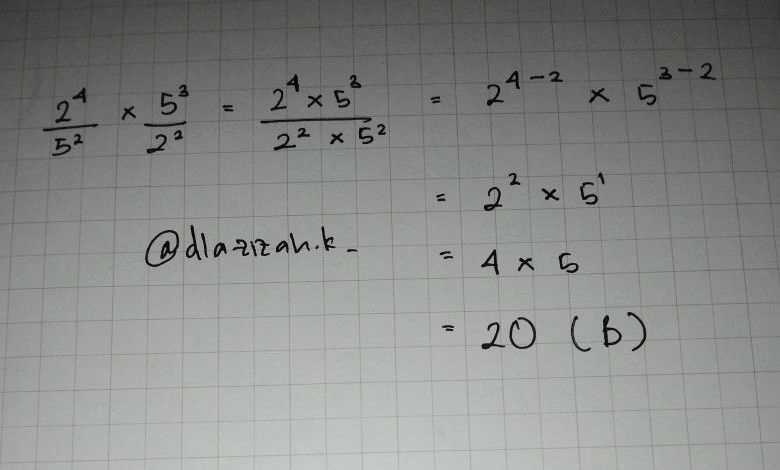 2⁴/5² × 5³/2² = 2⁴ × 5³/2² × 5² = 2⁴⁻² × 5³⁻²
= 2² × 5¹
@dlazizah.k_
= 4 × 5
= 20 (b)